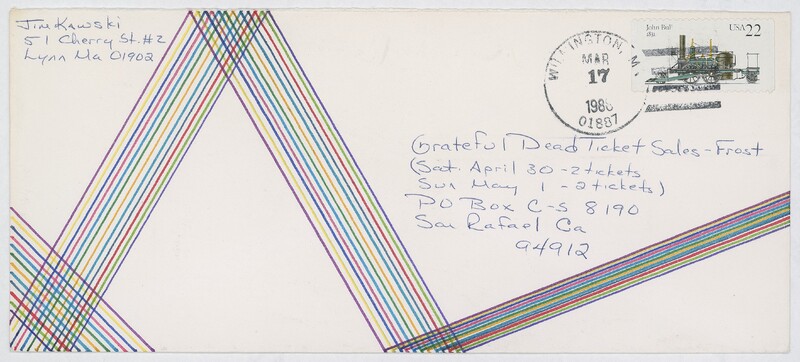 Jim Kawski
51 Cherry St. #2
Lynn Ma 01902
WILMINGTON, MA
MAR
17
1988
01887
John Bull
1831
USA 22
Grateful Dead Ticket Sales - Frost
(Sat. April 30 - 2 tickets
Sun May 1 - 2 tickets)
PO Box C-S 8190
San Rafael Ca
94912